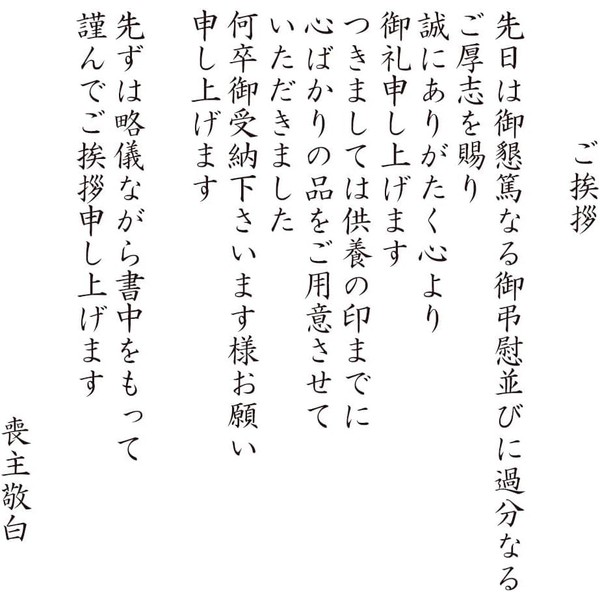 ご挨拶
先日は御懇篤なる御弔慰並びに過分なる
ご厚志を賜り
誠にありがたく心より
御礼申し上げます
つきましては供養の印までに
心ばかりの品をご用意させて
いただきました
何卒御受納下さいます様お願い
申し上げます
先ずは略儀ながら書中をもって
謹んでご挨拶申し上げます
喪主敬白